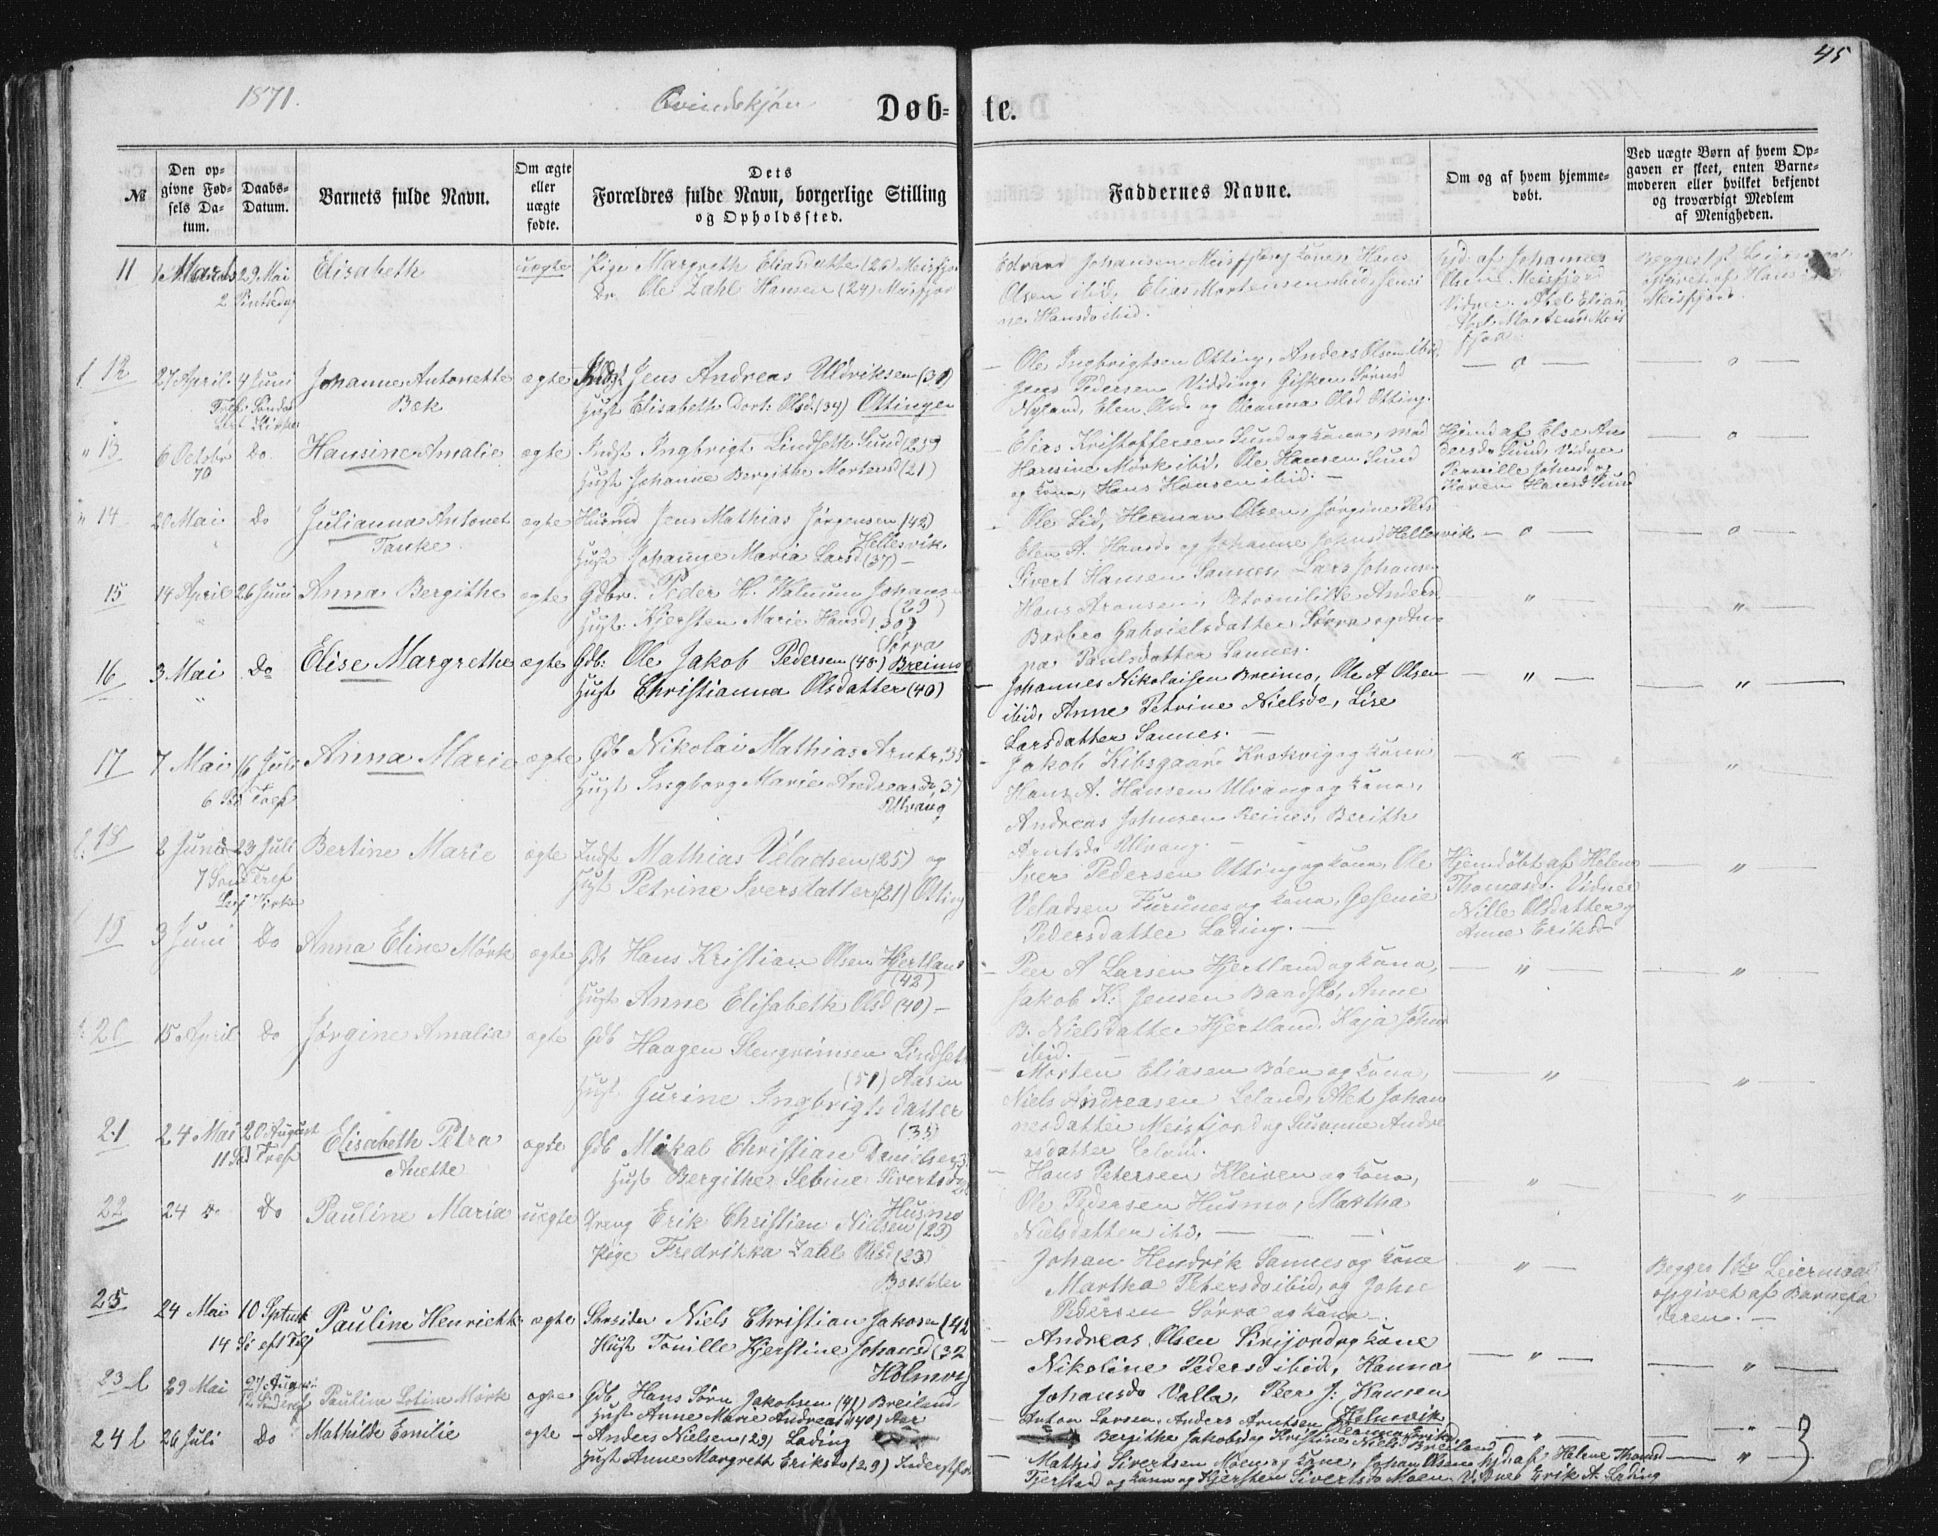 45
1871. Qvindekjøn Døb= te.
№
Den op-
givne Fød-
sels Da-
tum.
Daabs-
Datum.
Barnets fulde Navn.
Om ægte
eller
uægte
fødte.
Dets
Forældres fulde Navn, borgerlige Stilling
og Opholdssted.
Faddernes Navne.
Om og af hvem hjemme-
døbt.
Ved uægte Børn af hvem Op-
gaven er skeet, enten Barne-
moderen eller hvilket bekjendt
og troværdigt Medlem
af Menigheden.
11 1 Marts 29 Mai Elisabeth uægte Pige Margreth Eliasdatter (26) Meisfjor
2 Pintsedag Dr. Ole Zahl Hansen (24) Meisfjor
Edvard Johansen Meisfjord og kone, Hans
Olsen ibid, Elias Mortensen ibid, Jensi
ne Hansd ibid.
hjd. af Johannes
Olsen Meisfjord
Vidner. Abel Elias
Abel Mortens Meis
fjord
Begges 1st Leiermaal
opgivet af Hans
Meisfjord.
12 27 April 4 Juni Johanne Antonette ægte Indst Jens Andreas Uldriksen (31)
Bæk Hust Elisabeth Dort: Olsd (34) Ottingen
Ole Ingbrigtsen Otting, Anders Olsen ibid,
Jens Pedersen Vidding, Gisken Sørensd
Nyland, Elen Olsd og Oleanna Olsd Otting.
— o — — o
13 6 Octobr Do Hansine Amalie ægte Indst Ingbrigt Lindseth Sund (25)
70 Hust Johanne Bergithe Mortensd (21)
Elias Kristoffersen Sund og kone, Mad
Hansine Mørk ibid, Ole Hansen Sund
og kone, Hans Hansen ibid. —
Hjemd af Else An
dersd Sund, Vidner
Pernille Johansd og
Karen Hansd Sund
— o —
14 20 Mai Do Julianna Antonet ægte Husmd Jens Mathias Jørgensen (42)
Tanke Hellesvik
Hust Johanne Maria Larsd (37) —
Ole Lid, Herman Olsen, Jørgine Peds
Elen A. Hansd og Johanne Johnsd Hellesvik — o — — o —
15 14 April 26 Juni Anna Bergithe ægte Gdbr. Peder H. Johans
(29)
Hust. Kjersten Marie Hansd, (30)
Sørra
Sivert Hansen Sannes, Lars Johans
Hans Aronsen, Petronille Anders
Barbro Gabrielsdatter Sørra og An
na Paulsdatter Sannes.
— „ — — „ —
16 3 Mai Do Elise Margrethe ægte Gdb: Ole Jakob Pedersen (48) Breimo
Hust Christianna Olsdatter (40)
Johannes Nikolaisen Breimo, Ole A Olsen
ibid, Anne Petrine Nielsd, Lise
Larsdatter Sannes. —
— „ — — „ —
17 7 Mai 16 Juli Anna Marie ægte Gdb Nikolai Mathias Arntz (35
6 Sd Tref Hust Ingborg Marie Andreasd (37
Ulvang
Jakob Kibsgaard Kroskvig og kone
Hans A. Hansen Ulvang og kone,
Andreas Johnsen Reines, Berith
Arntsd Ulvang. —
— „ — „
18 2 Juni 23 Juli Bertine Marie ægte Indst Mathias Veladsen (25) og
7 Sønd Tref Hust Petrine Iversdatter (21) Otting
Iver Pedersen Otting og kone, Ole
Veladsen Furunes og kone, Gesenie
Pedersdatter Lading. —
Hjemdøbt af Helen
Thomasd. Vidner
Nille Olsdatter og
Anne Eriksd
— „ —
18 3 Juni Do Anna Eline Mørk ægte Gdb Hans Kristian Olsen Hjertland
(42)
Hust Anne Elisabeth Olsd (40) —
Peer A Larsen Hjertland og kone,
Jakob K: Jensen Baardslo, Anne
B. Nielsdatter Hjertland, Kaja Johns
ibid.
— „ — — „ —
20 15 April Do Jørgine Amalia ægte Gdb Haagen Stengrimsen Lindseth
(51) Aasen
Hust Gurine Ingbrigtsdatter
(35)
Morten Eliasen Bøen og kone,
Niels Andreasen Leland, Alet Johan
nesdatter Meisfjord og Susanne Andre
asdatter Leland.
— „ — — „ —
21 24 Mai 20 August Elisabeth Petra ægte Gdb Mikal Christian Danielsen
11 Sd Tref Anette Hust Bergithe Sebine Sivertsd
Husmo
Hans Petersen Kleiven og kone,
Ole Pedersen Husmo, Martha
Nielsdatter ibid, —
— „ — „
22 24 Do Do Pauline Maria uægte Dreng Erik Christian Nielsen (23)
Pige Fredrikka Zahl Olsd (23)
Johan Hendrik Sannes og kone
Martha Petersd ibid, og John
Pedersen Sørra og kone —.
— „ —
Begges 1ste Leiermaal
opgivet af Barnefa
deren. —
25 24 Mai 10 Septemb Pauline Henriette ægte Skrædder Niels Christian Jakobsen (42
14 Sø eft Tref Hust Tonille Kjerstine Johansd (32
Holmvig
Andreas Olsen Sirijord og kone
Nikoline Pedersd ibid, Hanna
Johansd Valla, Peer J: Hansen
Holmvik
— „ — — „ —
23 l 29 Mai 27 August Pauline Lotine Mørk ægte Gdb Hans Sørn Jakobsen (41) Breiland
12 Sønd Tref Hust Anne Marie Andreasd (40) Aar
Anton Larsen, Anders Arntsen,
Bergithe Jakobsd og Kristine Nielsd Breiland
— „ — — „ —
24 l 26 Juli Do Mathilde Emilie ægte Anders Nielsen (29) Lading
Hust Anne Margreth Eriksd (29) Inderst
Mathis Sivertsen Moen og kone, Johan Olsen
Fjersted og kone og Kjersten Sivertsd Moen
hjd. af Helene Thomsd
Vidner Erik A. Lading
— „ —